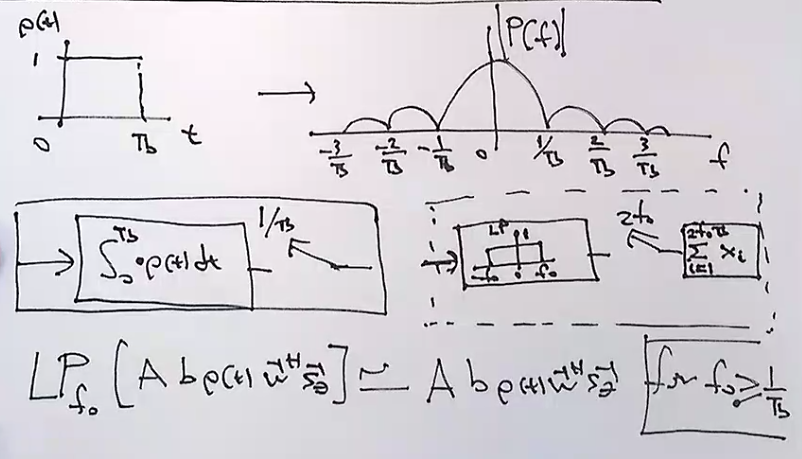 ρ(t)
1
0 Tb t
|P(f)|
-3/TB -2/TB -1/TB 0 1/TB 2/TB 3/TB f
∫₀^TB · ρ(t) dt
1/TB
LP
1
-f₀ 0 f₀
2f₀
∑_{i=1}^{2f₀TB} xᵢ
LP_f₀ [A b ρ(t) w⃗^H s⃗_∂] ≃ A b ρ(t) w⃗^H s⃗_∂ for f₀ ≥ 1/TB